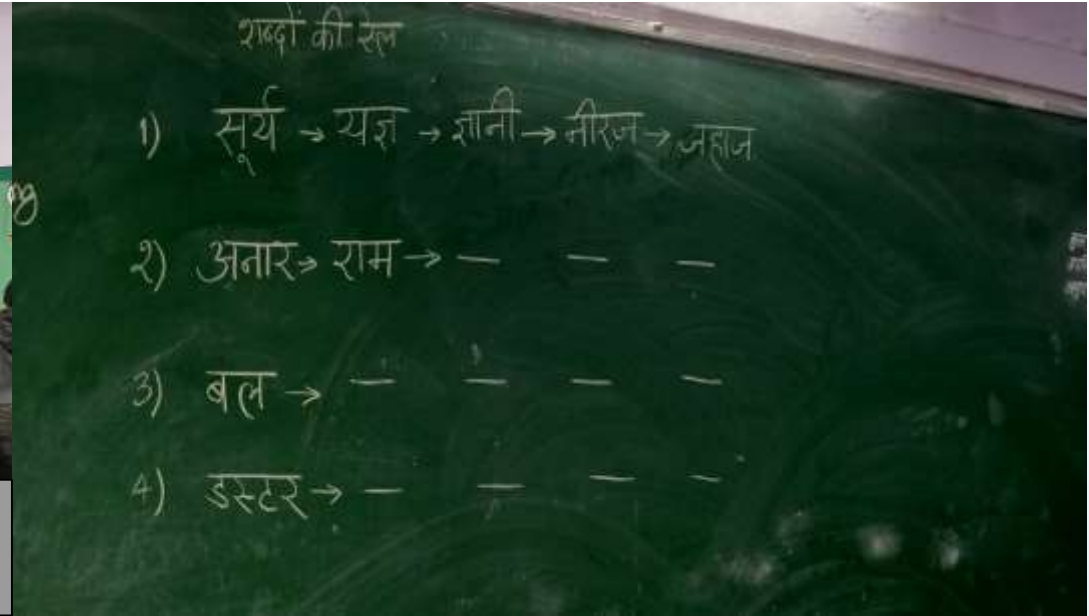 शब्दों की रेल
1) सूर्य → यज्ञ → ज्ञानी → नीरज → जहाज
२) अनार → राम → — — —
3) बल → — — — —
4) डस्टर → — — — —